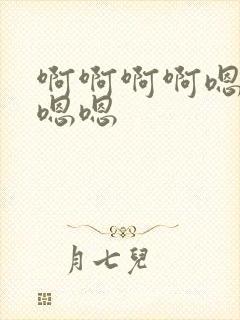 啊啊啊啊嗯
嗯嗯
月七兒